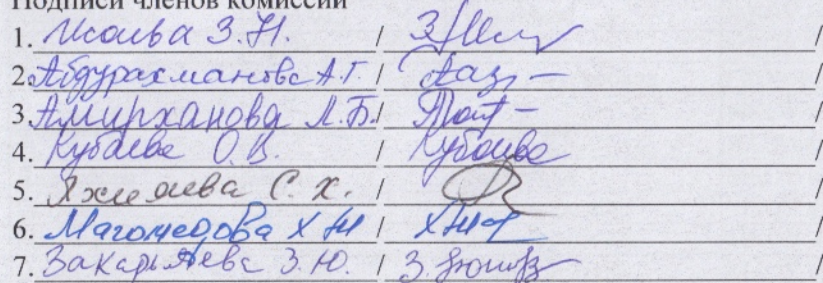 Подписи членов комиссии
1. Исаева З.Н. /  /
2. Абдурахманова А.Г. /  /
3. Амирханова Л.Б. /  /
4. Кубаева О.В. / Кубаева /
5. Яхияева С.Х. /  /
6. Магомедова Х /  /
7. Закарьяева З.Ю. / З. /